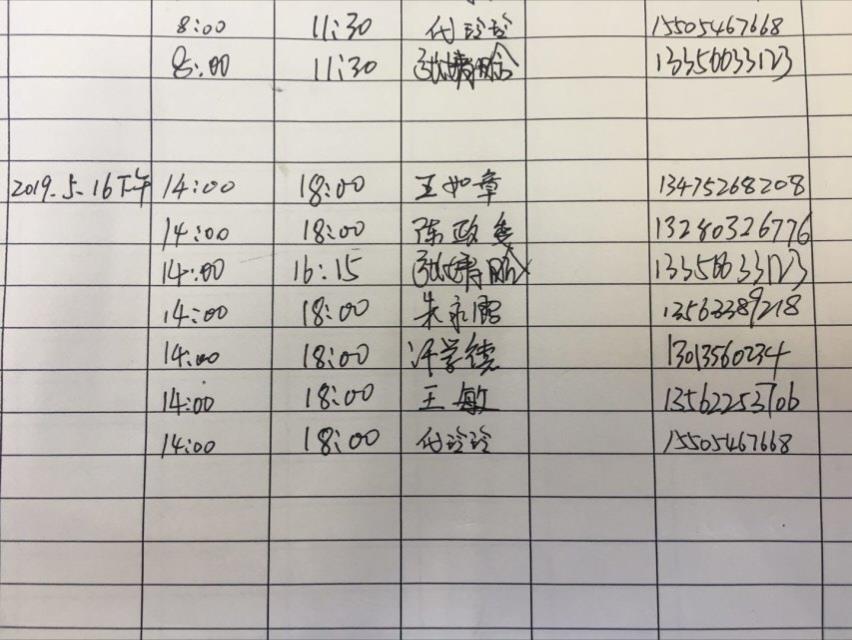 8:00 11:30 代玲玲 15505467668
8:00 11:30 13356033123
2019.5.16下午 14:00 18:00 王如章 13475268208
14:00 18:00 陈政 13280326776
14:00 16:15 13356033123
14:00 18:00 朱永 13562389218
14:00 18:00 许学德 13013560234
14:00 18:00 王敏 13562253706
14:00 18:00 代玲玲 15505467668